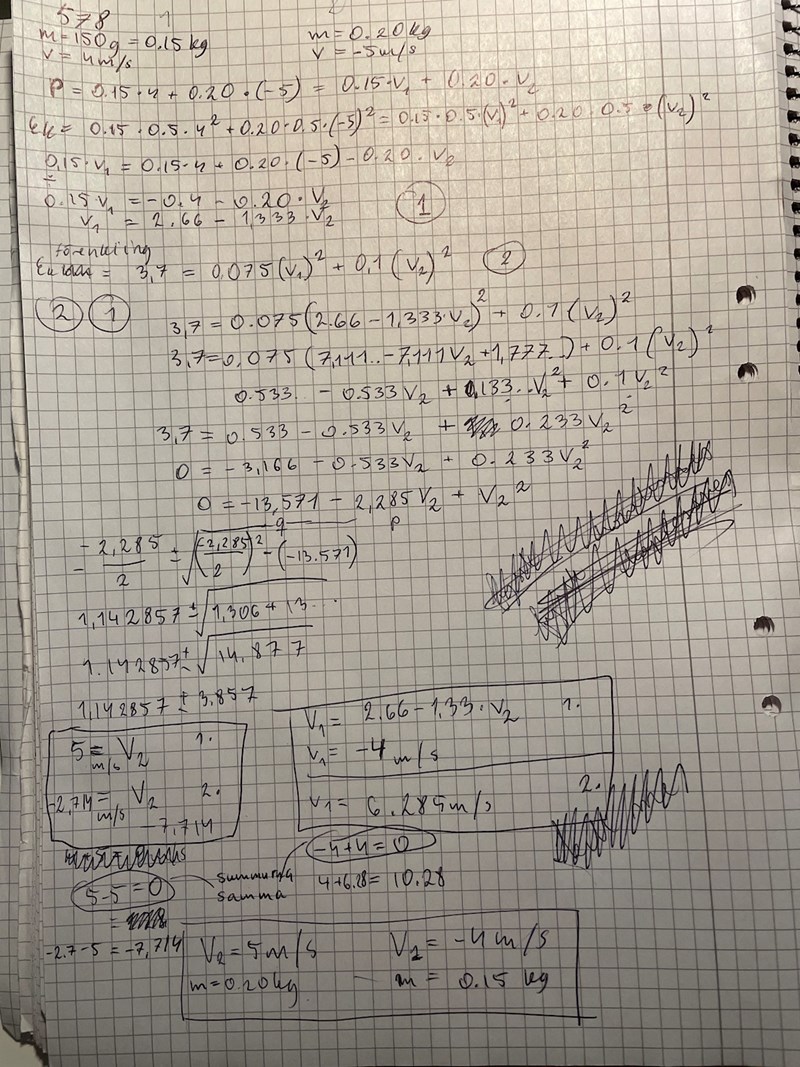 578
1
m = 150g = 0.15 kg
m = 0.20 kg
v = 4 m/s
v = -5 m/s
P = 0.15 · 4 + 0.20 · (-5) = 0.15 · v₁ + 0.20 · v₂
Ek = 0.15 · 0.5 · 4² + 0.20 · 0.5 · (-5)² = 0.15 · 0.5 · (v₁)² + 0.20 · 0.5 · (v₂)²
0.15 · v₁ = 0.15 · 4 + 0.20 · (-5) - 0.20 · v₂
0.15 v₁ = -0.4 - 0.20 · v₂
v₁ = 2.66 - 1,333 · v₂ ①
förenkling
= 3,7 = 0,075 (v₁)² + 0,1 (v₂)² ②
② ①
3,7 = 0.075 (2.66 - 1,333 · v₂)² + 0.1 (v₂)²
3,7 = 0,075 (7,111.. - 7,111 v₂ + 1,777..) + 0.1 (v₂)²
0.533.. - 0.533 v₂ + 0,133.. v₂² + 0.1 v₂²
3,7 = 0.533 - 0.533 v₂ + 0.233 v₂²
0 = -3,166 - 0.533 v₂ + 0.233 v₂²
0 = -13,571 - 2,285 v₂ + v₂²
q p
- -2,285/2 ± √((-2,285/2)² - (-13.571))
1,142857 ± √(1,306 + 13...
1.142857 ± √14,877
1,142857 ± 3,857
5 m/s = v₂ 1.
-2,714 m/s = v₂ 2.
-7,714
v₁ = 2.66 - 1,33 · v₂ 1.
v₁ = -4 m/s
v₁ = 6.285 m/s 2.
5 - 5 = 0
summorna
samma
-4 + 4 = 0
4 + 6.28 = 10.28
-2.7 - 5 = -7,714
v₂ = 5 m/s v₁ = -4 m/s
m = 0.20 kg m = 0.15 kg